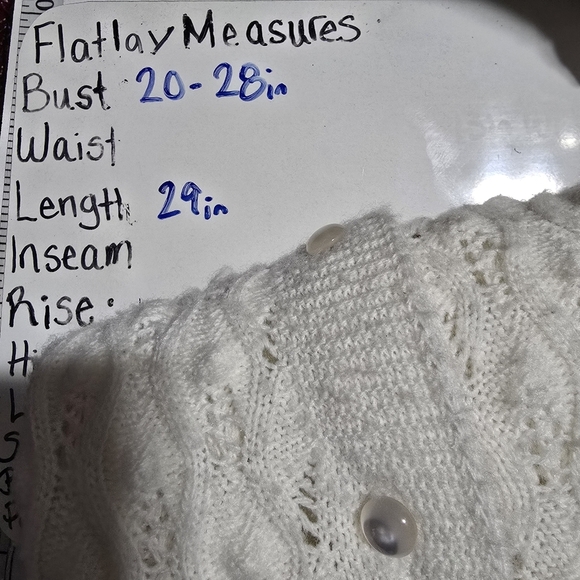 Flatlay Measures
Bust 20-28in
Waist
Length 29in
Inseam
Rise:
H
L
S